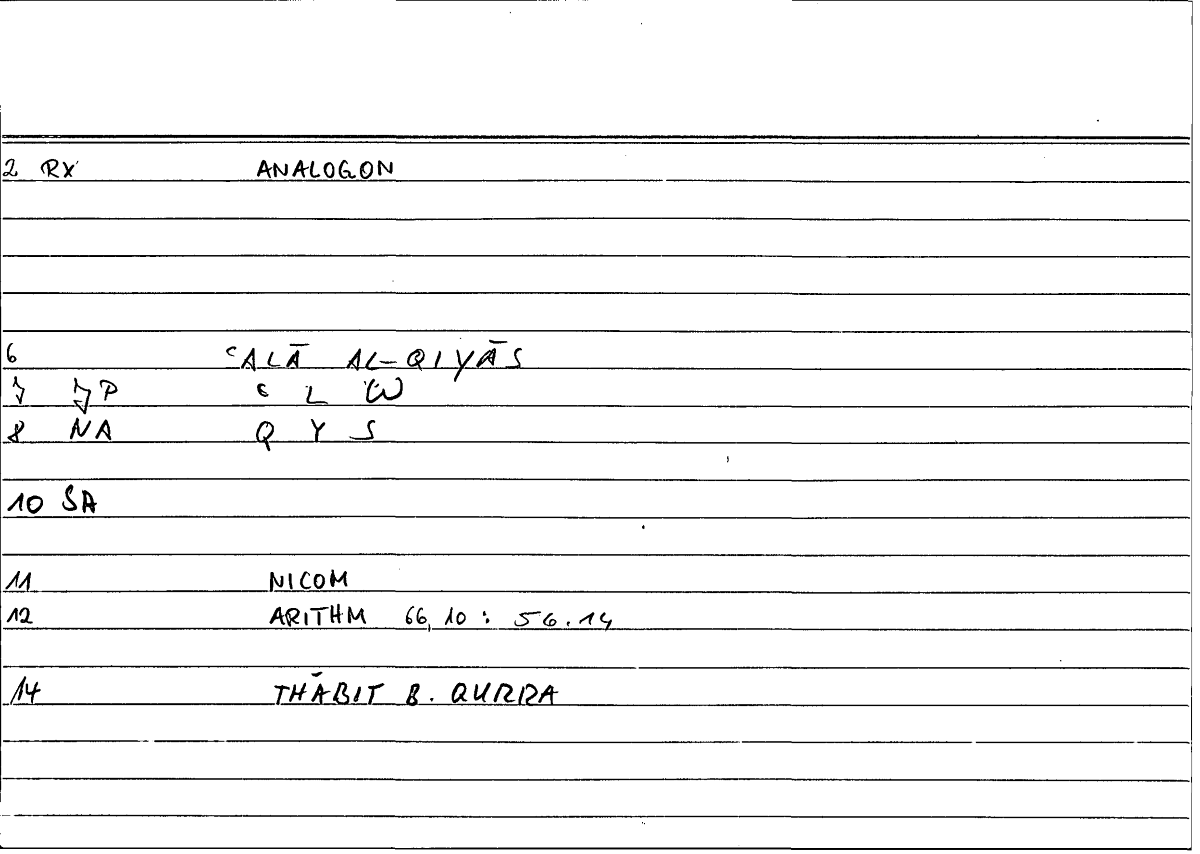 2 RX ANALOGON
6 ʿALĀ AL-QIYĀS
7 JP ʿ L W
8 NA Q Y S
10 SA
11 NICOM
12 ARITHM 66,10 : 56.14
14 THĀBIT B. QURRA